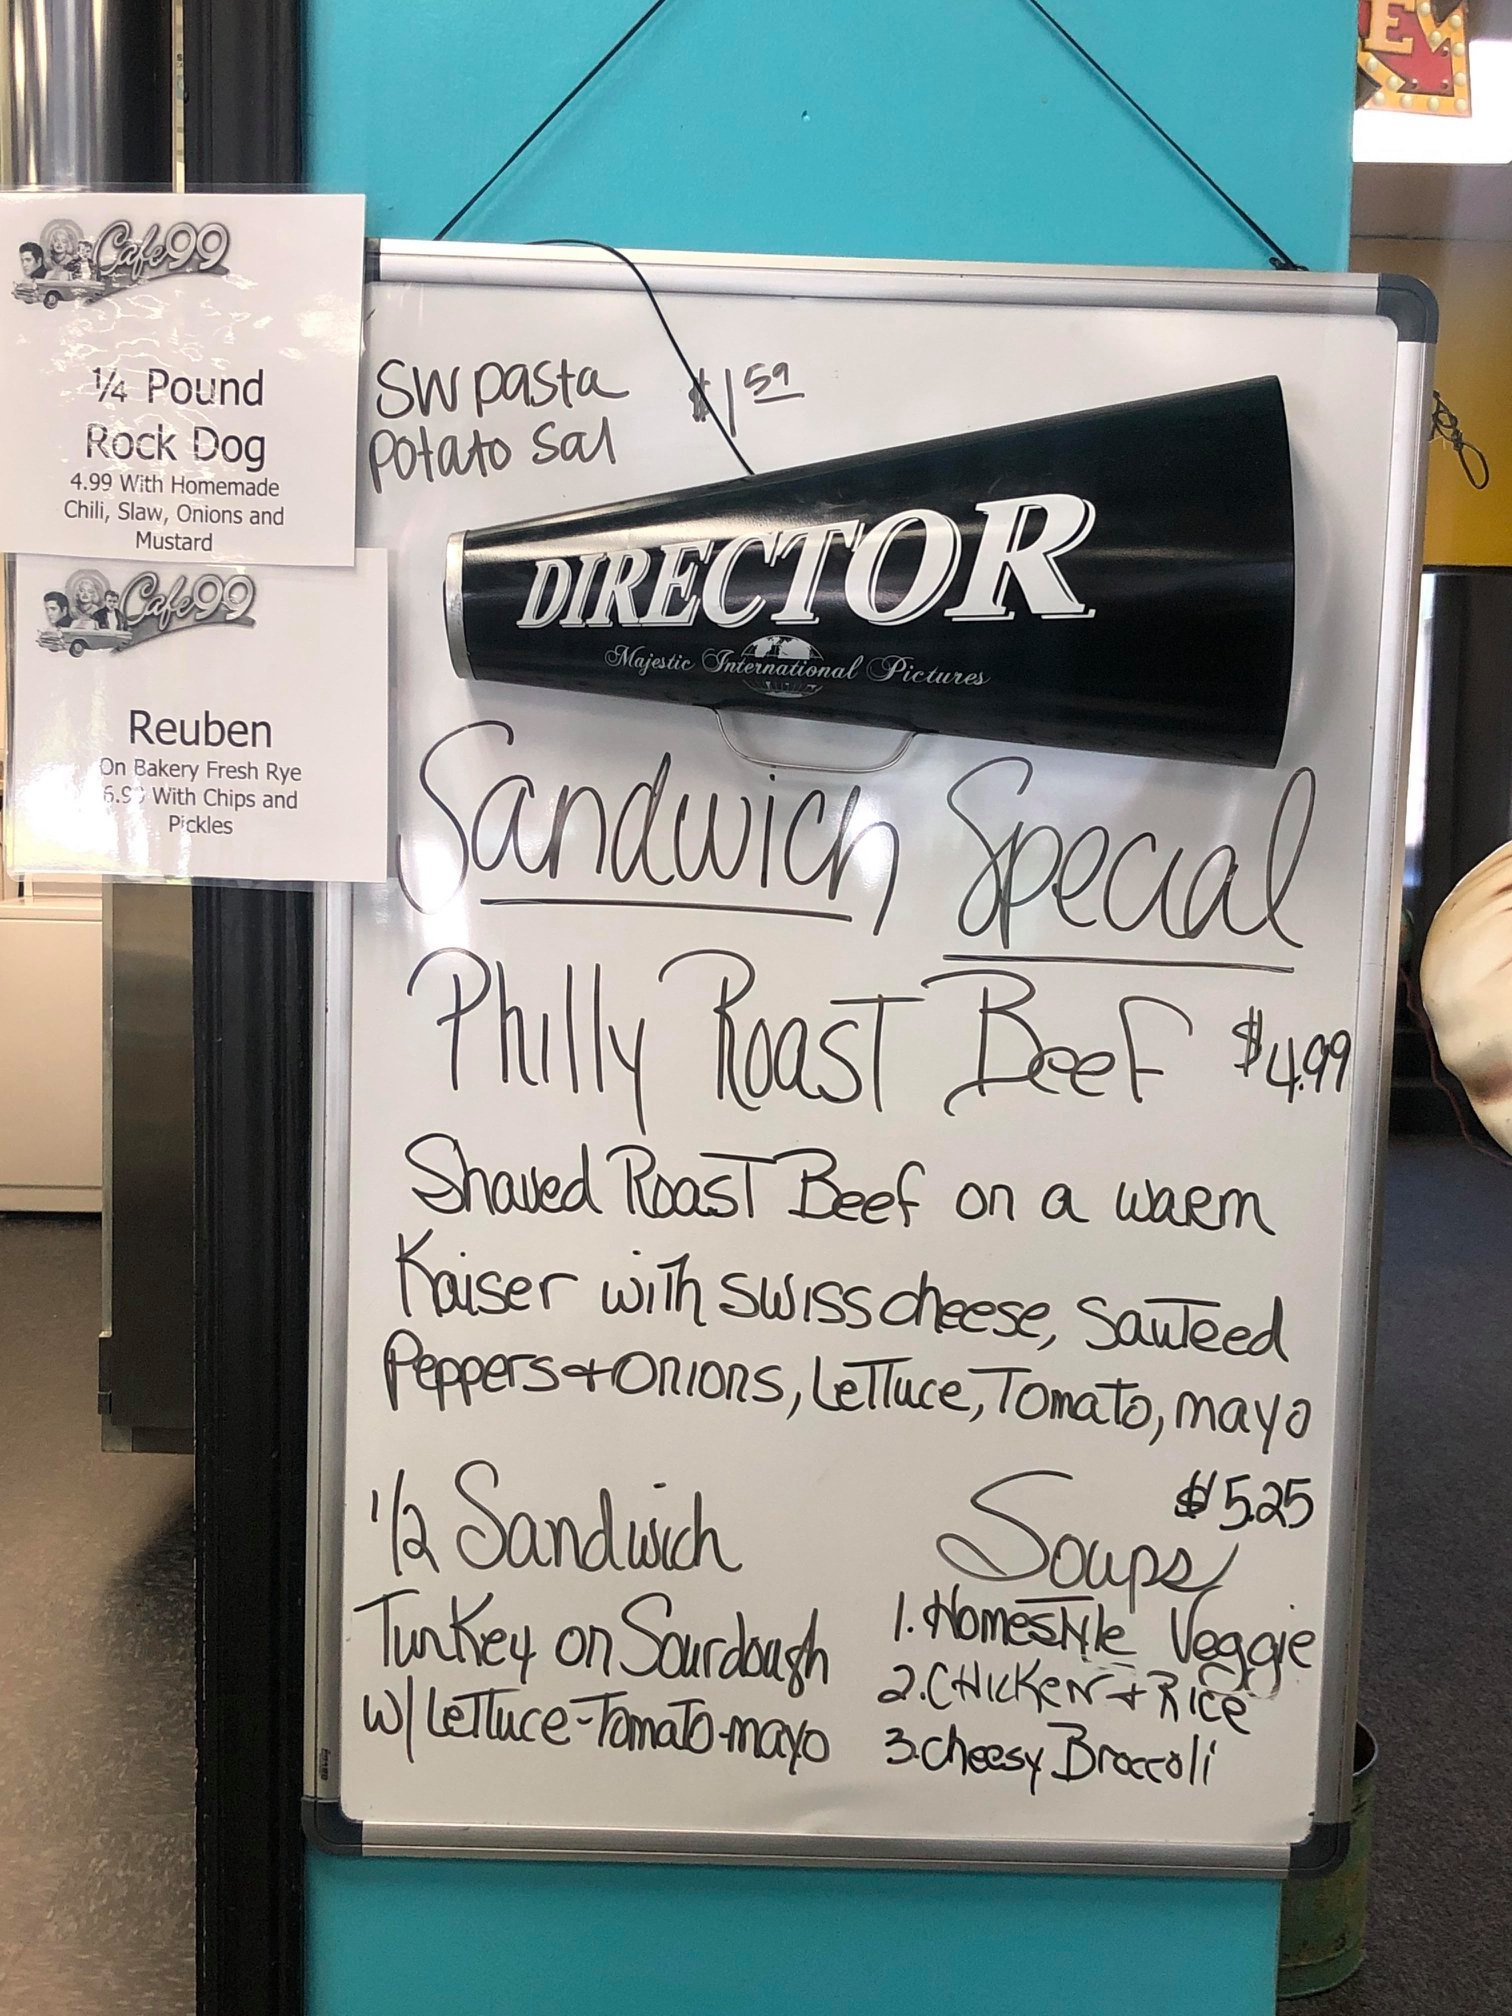 Cafe99
1/4 Pound
Rock Dog
4.99 With Homemade
Chili, Slaw, Onions and
Mustard
Cafe99
Reuben
On Bakery Fresh Rye
6.99 With Chips and
Pickles
SW pasta $1 59
potato Sal
DIRECTOR
Majestic International Pictures
Sandwich Special
Philly Roast Beef $4.99
Shaved Roast Beef on a warm
Kaiser with swiss cheese, Sauteed
Peppers + Onions, Lettuce, Tomato, mayo
1/2 Sandwich
Turkey on Sourdough
w/ Lettuce-Tomato-mayo
$5.25
Soups
1. Homestyle Veggie
2. Chicken + Rice
3. Cheesy Broccoli
E